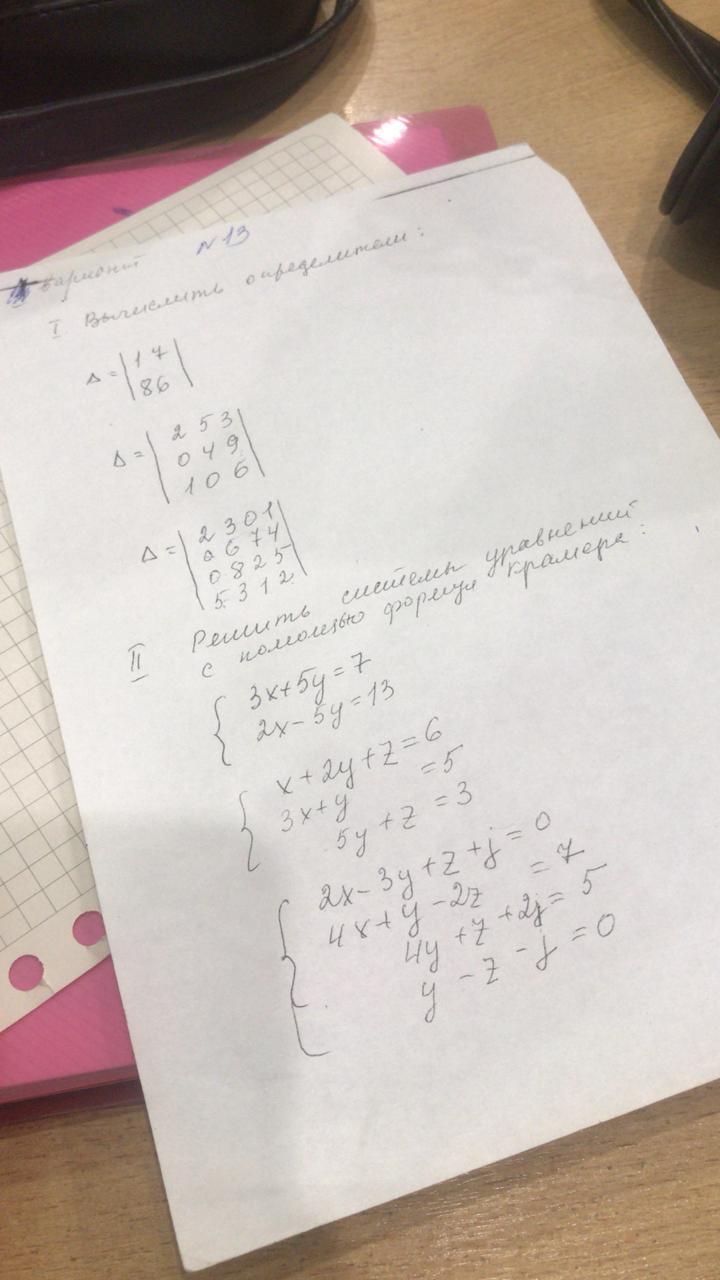 вариант № 13
I Вычислить определители:
Δ = | 1 7 |
| 8 6 |
Δ = | 2 5 3 |
| 0 4 9 |
| 1 0 6 |
Δ = | 2 3 0 1 |
| 0 6 7 4 |
| 0 8 2 5 |
| 5 3 1 2 |
II Решить системы уравнений
с помощью формул Крамера:
3x+5y=7
2x-5y=13
x+2y+z=6
3x+y =5
5y+z =3
2x-3y+z+j=0
4x+y-2z =7
4y+z+2j=5
y-z-j=0